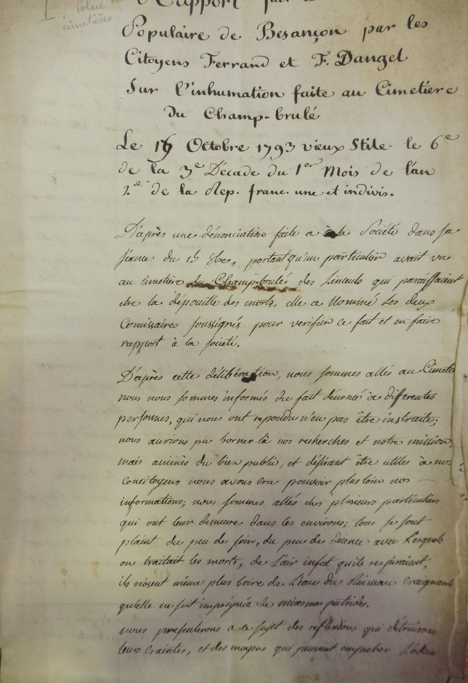 Police des
cimetières
Rapport
Populaire de Besançon par les
Citoyens Ferrand et F. Dangel
Sur l'inhumation faite au Cimetiere
Du Champ-brulé
Le Octobre 1793 vieux Stile le 6e
de la 3e Décade du 1er Mois de l'an
2.e de la Rep. franc. une et indivis.
D'après une dénonciation faite a la Société dans sa
séance du 15 portant qu'un particulier avait vu
au cimetière du Champ-brulé des linceuls qui paraissaient
être la depouille des morts, elle a Nommé les deux
Comissaires soussignés pour verifier ce fait et en faire
rapport à la societé.
D'après cette délibération, nous sommes allés au Cimetiere
nous nous sommes informés du fait dénoncé a differentes
personnes, qui nous ont repondu n'en pas être instruites,
nous aurions pu borner là nos recherches et notre mission
mais animés du bien public, et désirant être utiles à nos
Concitoyens nous avons cru pouvoir plus loin nos
informations; nous sommes allés chés plusieurs particuliers
qui ont leur demeure dans les environs; tous se sont
plaint du peu de soin, du peu de décence avec lesquels
on traitait les morts, de l'air infect qu'ils respiraient,
ils n'osent même plus boire de l'eau du Ruisseau craignants
qu'elle ne soit impregnée de miasmes putrides.
nous presenterons a ce sujet des reflexions qui détruiront
leurs craintes, et des moyens qui peuvent empecher